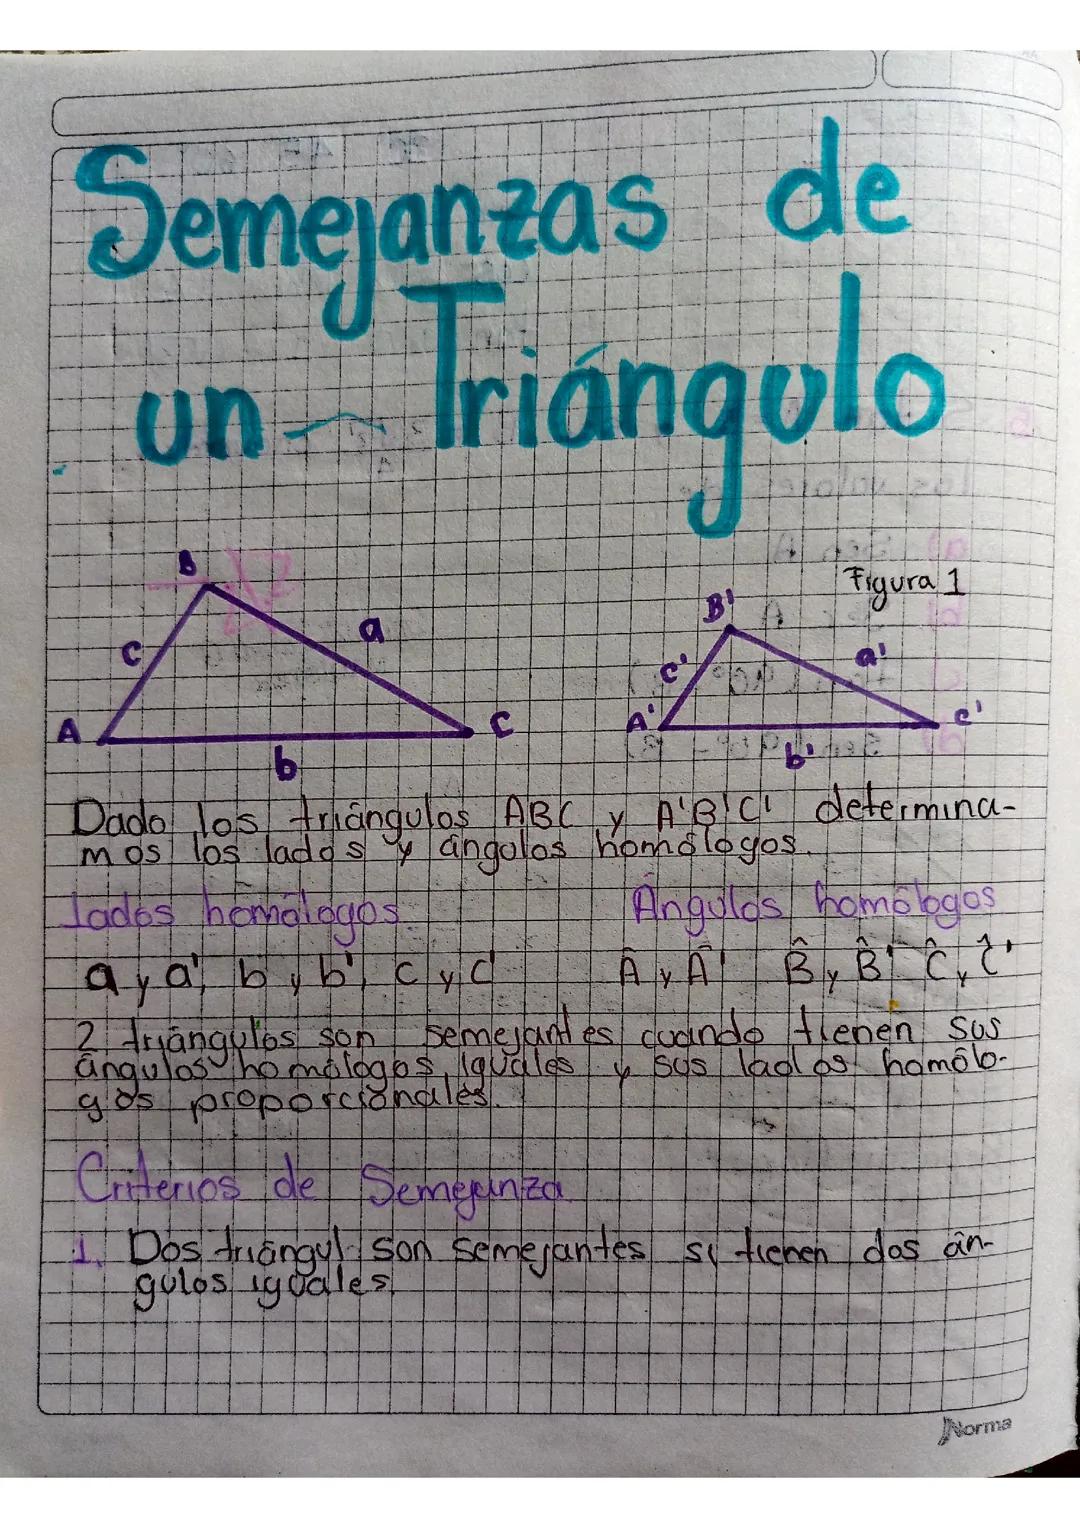 Semejanzas de
un Triángulo
Figura 1
B
c
a
A
b
C
B'
c'
a'
A'
b'
c'
Dado los triángulos ABC y A'B'C' determina-
mos los lados y ángulos homólogos.
lados homólogos
Ángulos homólogos
a y a', b y b', c y c'
Â y Â' B̂ y B̂' Ĉ y Ĉ'
2 triángulos son semejantes cuando tienen sus
ángulos homólogos iguales y sus lados homólo-
gos proporcionales.
Criterios de Semejanza
1. Dos triángul son semejantes si tienen dos án-
gulos iguales.
Norma